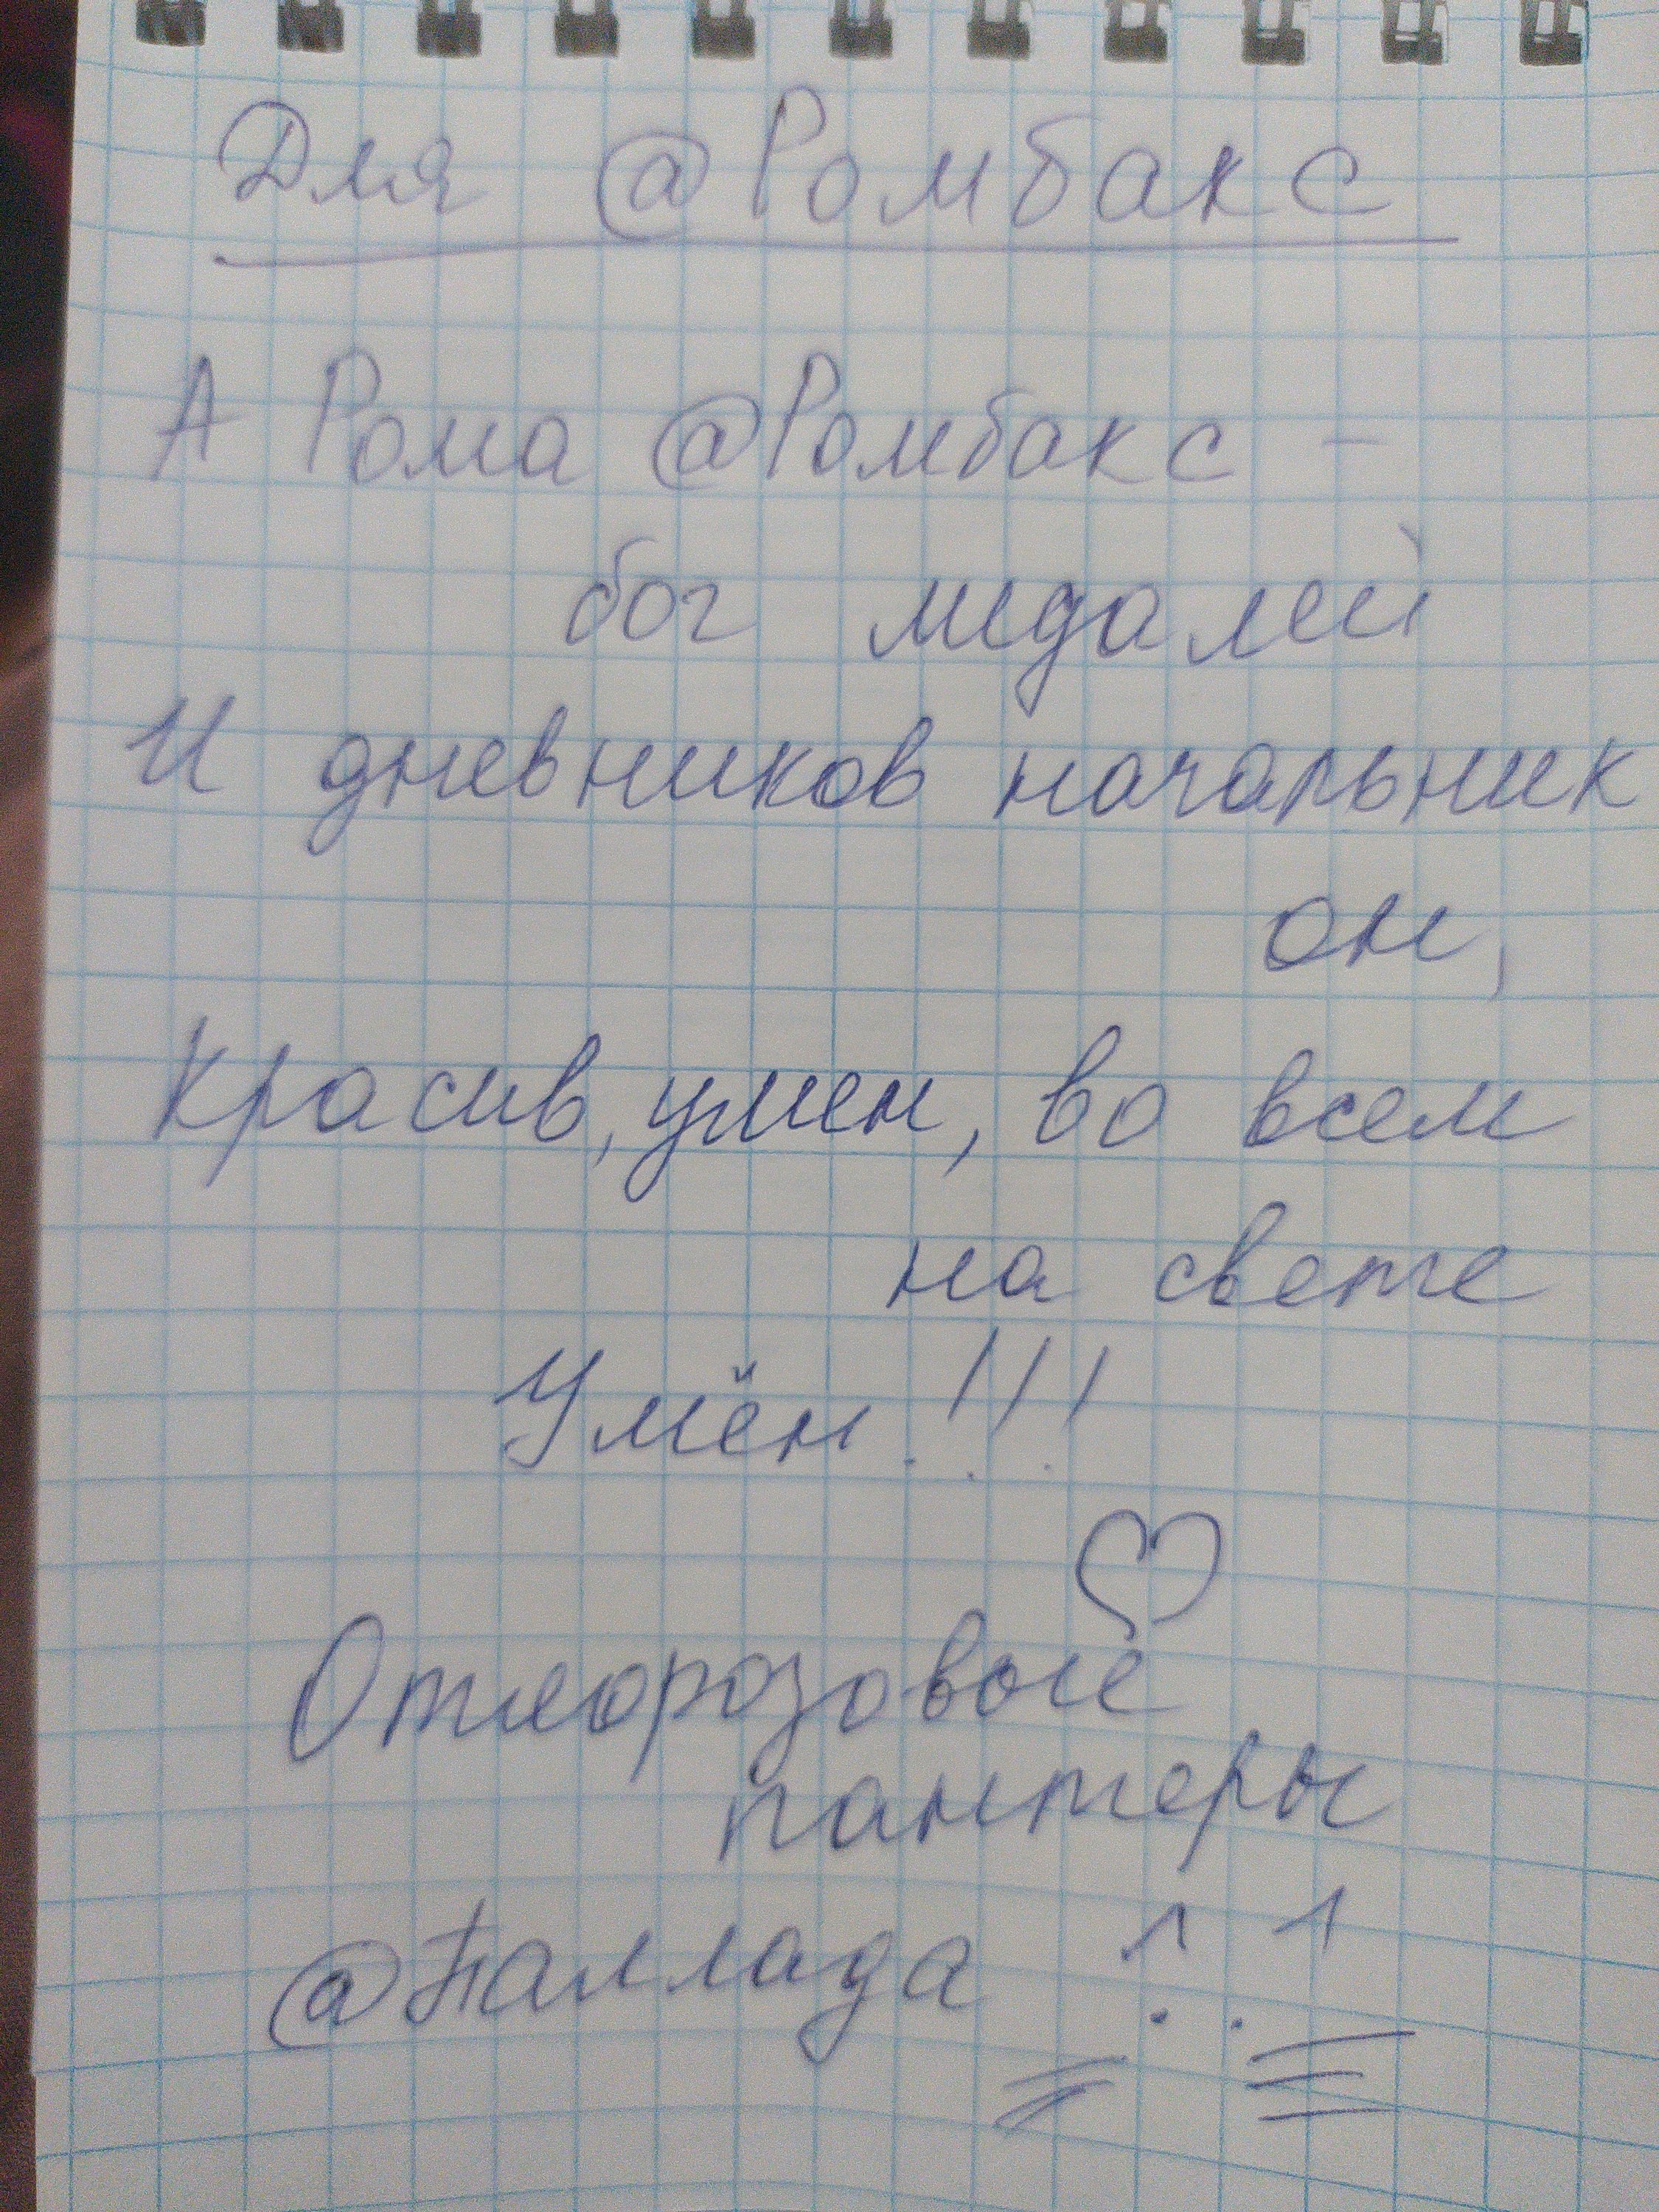 Для @Ромбакс
А Рома @Ромбакс -
бог медалей
И дневников начальник
он,
Красив, умен, во всем
на свете
Умён!!!
пантеры
@Паллада